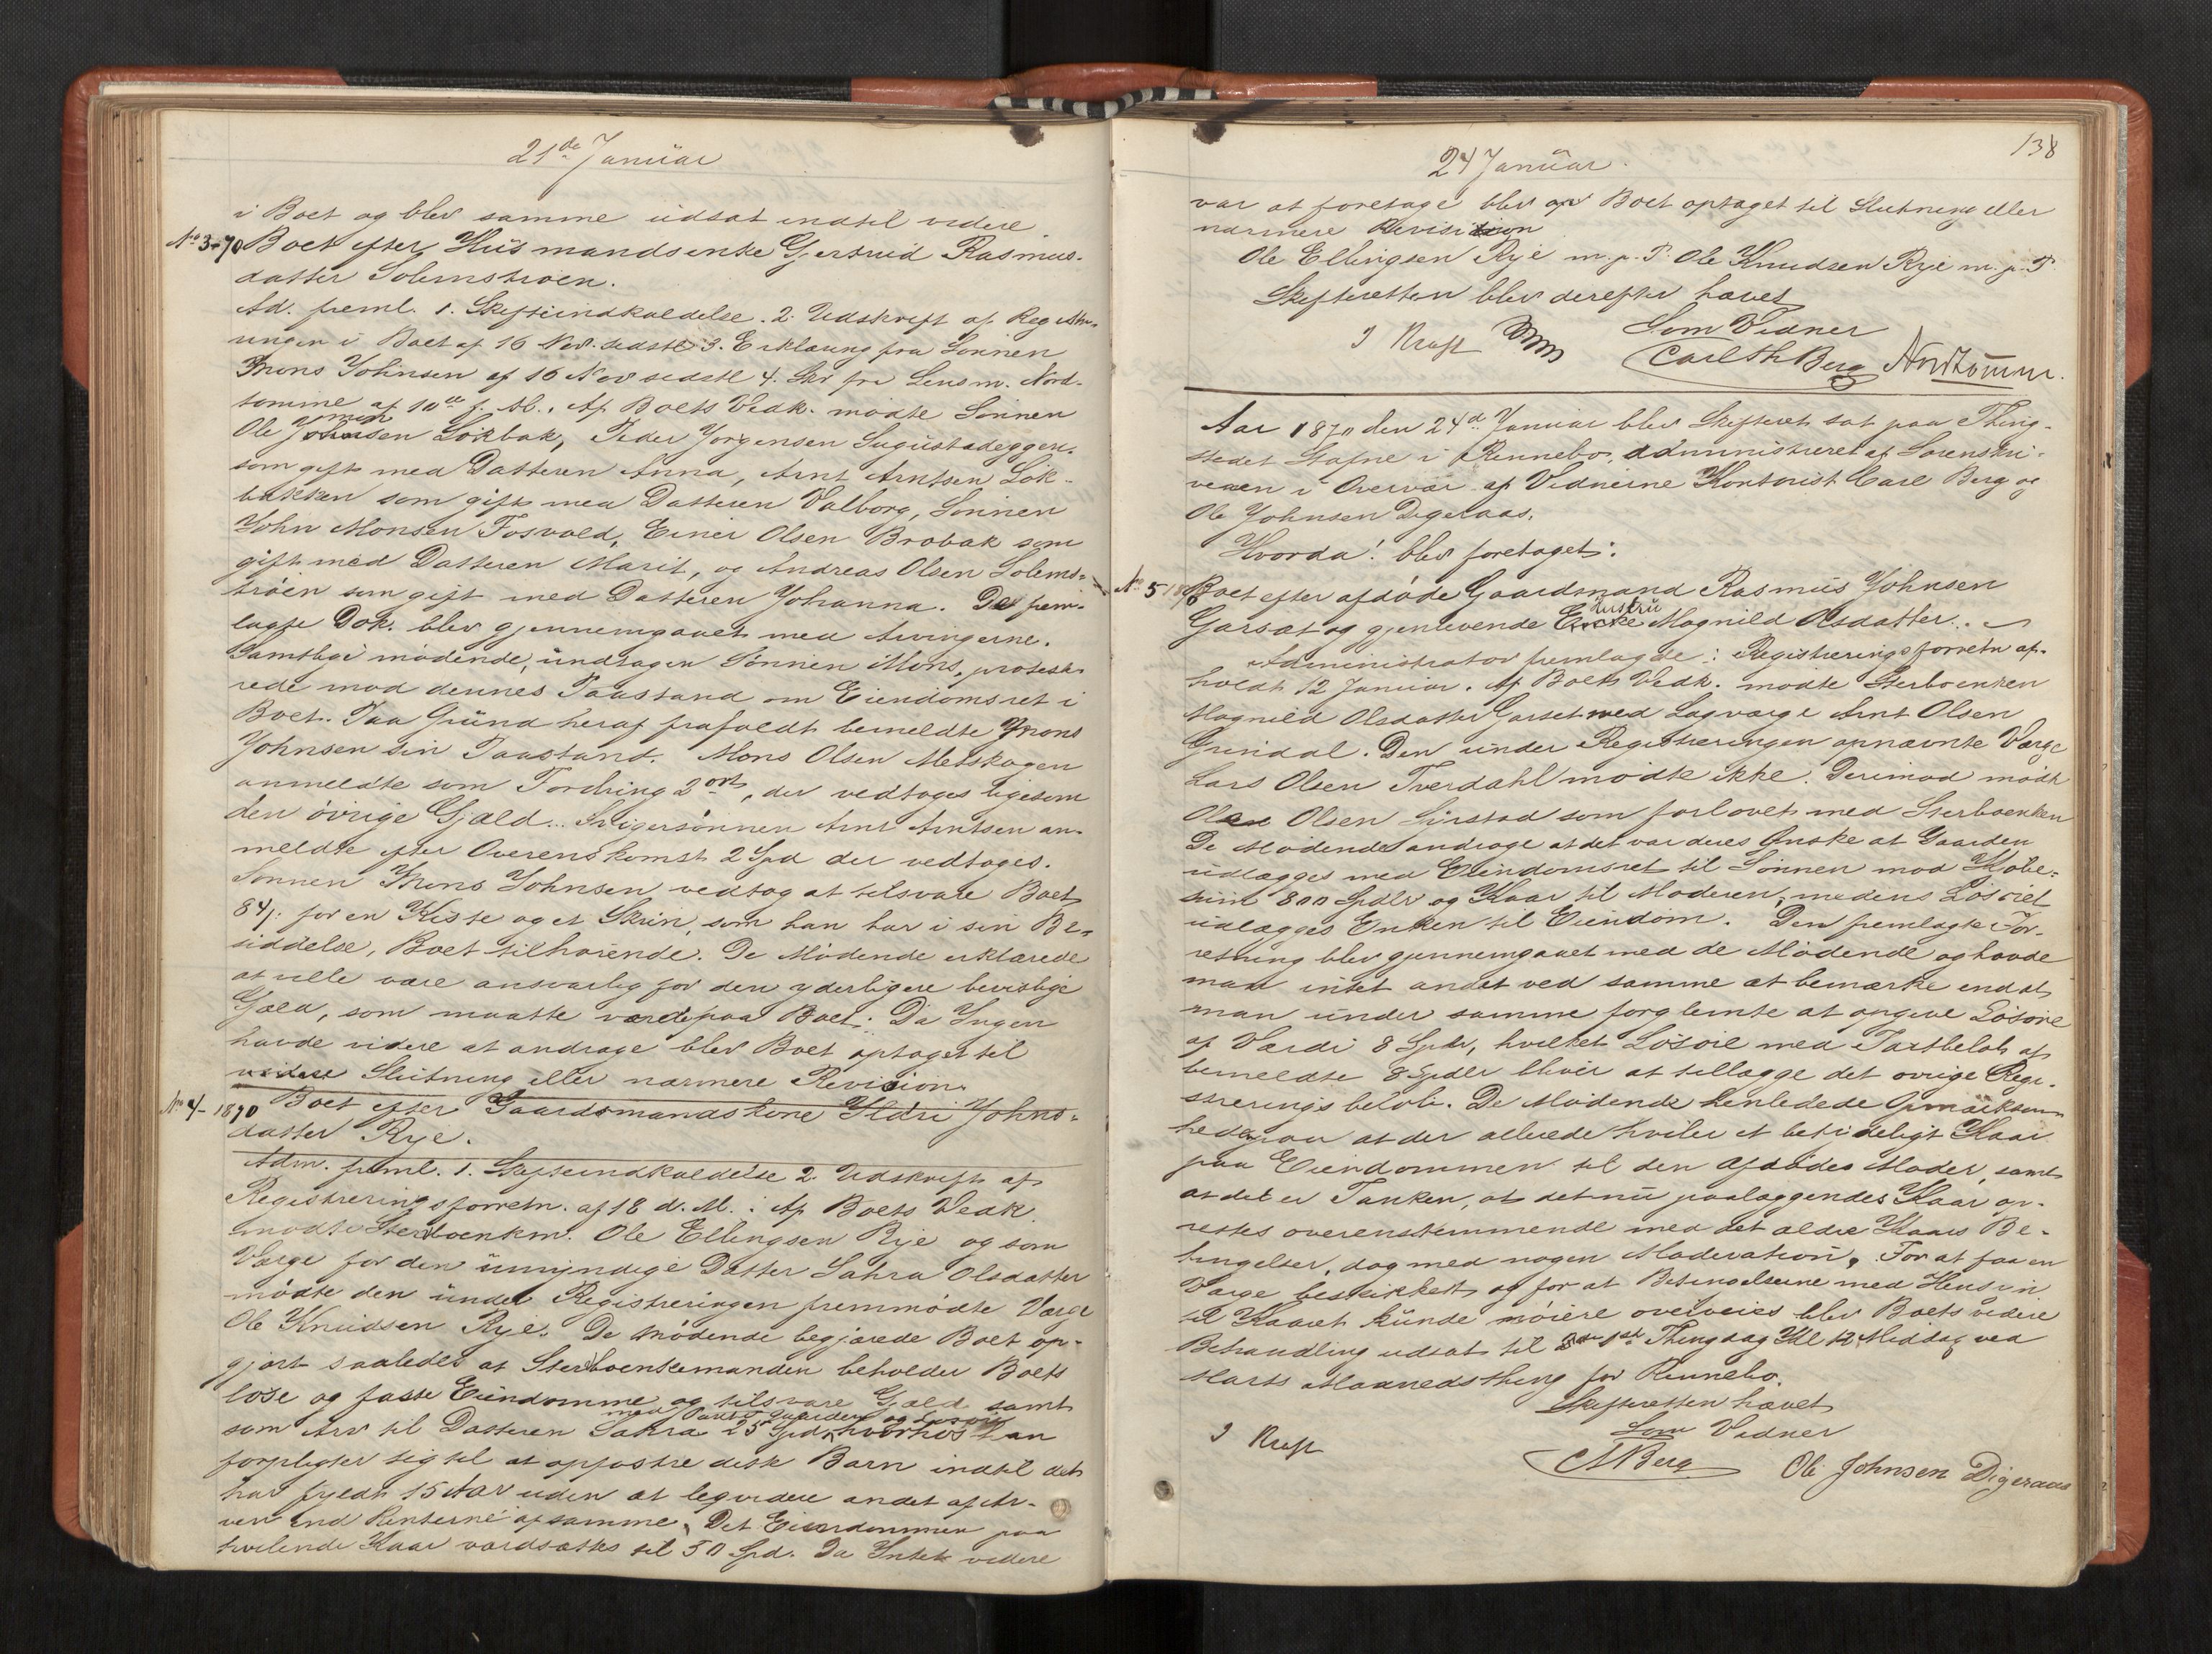 21de Januar
i Boet og blev samme udsat indtil videre
No 3-70 Boet efter Husmandsenke Gjertrud Rasmus-
datter Solemstroen.
Ad. freml. 1. Skifteindkaldelse. 2. Udskrift af Registre-
ringen i Boet af 16 Nov. sidstl 3. Erklæring fra Sønnen
Mons Johnsen af 16 Nov sidstl 4. Skr fra Lensm. Nord-
tømme af 10de f. M., Af Boets Vedk. mødte Sønnen
Ole Johnsen Løkbak, Peder Jørgensen
som gift med Datteren Anna, Arnt Arntsen Løk-
bakken som gift med Datteren Valborg, Sønnen
John Monsen Fosvold, Einer Olsen Brobak som
gift med Datteren Marit, og Andreas Olsen Solems-
trøen som gift med Datteren Johanna. De frem-
lagte Dok. blev gjennemgaaet med Arvingerne.
Samtlige mødende, undtagen Sønnen Mons, proteste-
rede mod dennes Paastand om Eiendomsret i
Boet. Paa Grund heraf frafaldt bemeldte Mons
Johnsen sin Paastand. Mons Olsen Metskogen
anmeldte som Fordring 2 ort, der vedtoges ligesom
den øvrige Gjæld. Svigersønnen Arnt Arntsen an-
meldte efter Overenskomst 2 Spd der vedtoges.
Sønnen Mons Johnsen vedtog at tilsvare Boet
84 for en Kiste og et Skrin, som han har i sin Be-
siddelse, Boet tilhørende. De Mødende erklærede
at ville være ansvarlig for den yderligere bevislige
Gjæld, som maatte værdepaa Boet. Da Ingen
havde videre at andrage blev Boet optaget til
videre Slutning eller nærmere Revision.
No 4-1870 Boet efter Gaardsmandskone Ildri Johns-
datter Rye.
Adm. freml. 1. Skifteindkaldelse 2. Udskrift af
Registreringsforretn. af 18 d. M. : Af Boets Vedk.
mødte Sterboenkm. Ole Ellingsen Rye og som
Værge for den umyndige Datter Sahra Olsdatter
mødte den under Registreringen fremmødte Værge
Ole Knudsen Rye. De Mødende begjærede Boet op-
gjort saaledes at Sterboenkemanden beholder Boets
løse og faste Eiendomme og tilsvare Gjæld samt
med Pant i Gaarden og Løsøre
som Arv til Datteren Sahra 25 Spd, hvorhos han
forpligter sig til at opfostre disk Barn indtil det
har fyldt 15 Aar uden at begvidere andet af Ar-
ven end Renterne af samme. Det Eiendommen paa
hvilende Kaar værdsættes til 50 Spd. Da Intet videre
138
24 Januar.
var at foretage blev op Boet optaget til Slutning eller
nærmere Revision
Ole Ellingsen Rye m. p. P. Ole Knudsen Rye m. p. P
Skifteretten blev derefter hævet
Som Vidner
J Kraft Carl Th Berg Nordtømme.
Aar 1870 den 24d Januar blev Skifteret sat paa Thing-
stedet Stafne i Rennebo, administreret af Sorenskri-
veren i Overvær af Vidnerne Kontorist Carl Berg og
Ole Johnsen Digeraas.
Hvorda! blev foretaget:
No 5/1870 Boet efter afdøde Gaardmand Rasmus Johnsen
Hustru
Garsæt og gjenlevende Enke Magnild Olsdatter.
Administrator fremlagde: Registreringsforretn af-
holdt 12 Januar. Af Boets Vedk. mødte Sterboenken
Magnild Olsdatter Garset med Lagværge Arnt Olsen
Grindal. Den under Registreringen opnævnte Værge
Lars Olsen Tverdahl mødte ikke. Derimod mødte
Ole Olsen Gurstad som forlovet med Sterboenken
De Mødende androge at det var deres Ønske at Gaarden
udlægges med Eiendomsret til Sønnen mod Købe-
sum 800 Spdlr og Kaar til Moderen, medens Løsøret
udlægges Enken til Eiendom. Den fremlagte For-
retning blev gjennemgaaet med de Mødende og havde
man intet andet ved samme at bemærke end at
man under samme forglemte at opgive Løsøre
af Værdi 8 Spdr, hvilket Løsøre med Taxtbeløb af
bemeldte 8 Spdlr bliver at tillægge det øvrige Regi-
streringsbeløb. De Mødende henledede Opmærksom-
heden paa at der allerede hviler et betydeligt Kaar
paa Eiendommen til den Afdødes Moder, samt
at det er Tanken, at det nu paalæggendes Kaar op-
rettes overensstemmende med det ældre Kaars Be-
tingelser, dog med nogen Moderation. For at faa en
Værge beskikket og for at Betingelserne med Hensyn
til Kaaret kunde nøiere overveies blev Boets videre
Behandling udsat til 1ste Thingdag Kl 12 Middag ved
Marts Maanedsthing for Rennebo.
Skifteretten hævet
Som Vidner
J Kraft C Th Berg Ole Johnsen Digeraas